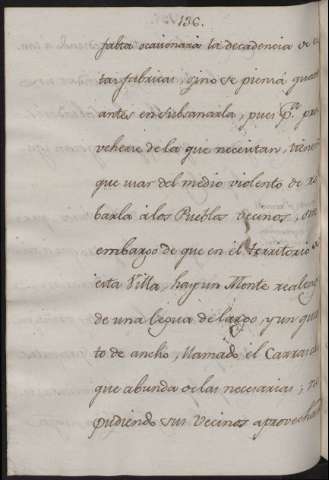 136.
falta ocacionaria la decadencia de es
tas fabricas, sino se piensa quanto
antes en subsanarla, pues pa. pro
veherse de la que necesitan, tienen
que usar del medio violento de ro
barla à los Pueblos vecinos, sin
embargo de que en el territorio de
esta Villa, hay un Monte realengo
de una legua de largo, y un quar
to de ancho, llamado el Carrascal
que abunda de las necesarias; no
pudiendo sus Vecinos aprovechar